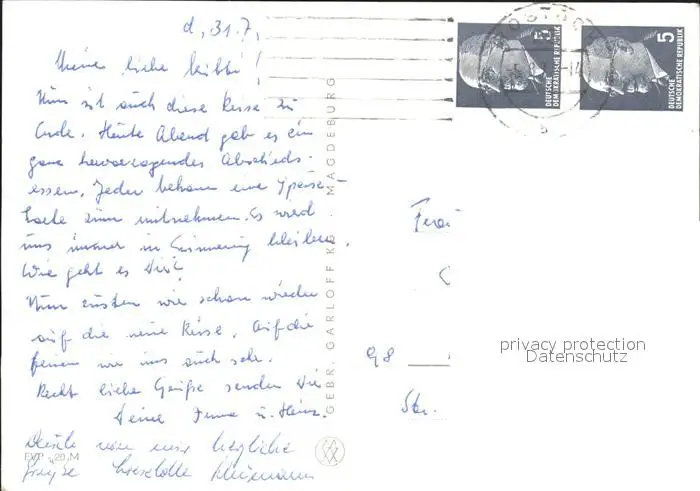 d. 31.7.
Meine liebe
Nun ist auch diese Reise zu
Ende. Heute Abend gab es ein
ganz hervorragendes Abschieds-
essen. Jeder bekam eine Speise-
karte zum mitnehmen. Es wird
uns immer in Erinnerung bleiben.
Wie geht es Dir?
Nun rüsten wir schon wieder
auf die neue Reise. Auf die
freuen wir uns auch sehr.
Recht liebe Grüße senden Dir
Deine u. Heinz.
von mir herzliche
Grüße Lieselotte
EVP -.20 M
GEBR. GARLOFF KG. MAGDEBURG
5
DEUTSCHE
DEMOKRATISCHE REPUBLIK
5
DEUTSCHE
DEMOKRATISCHE REPUBLIK
Frau
98
Str.
privacy protection
Datenschutz